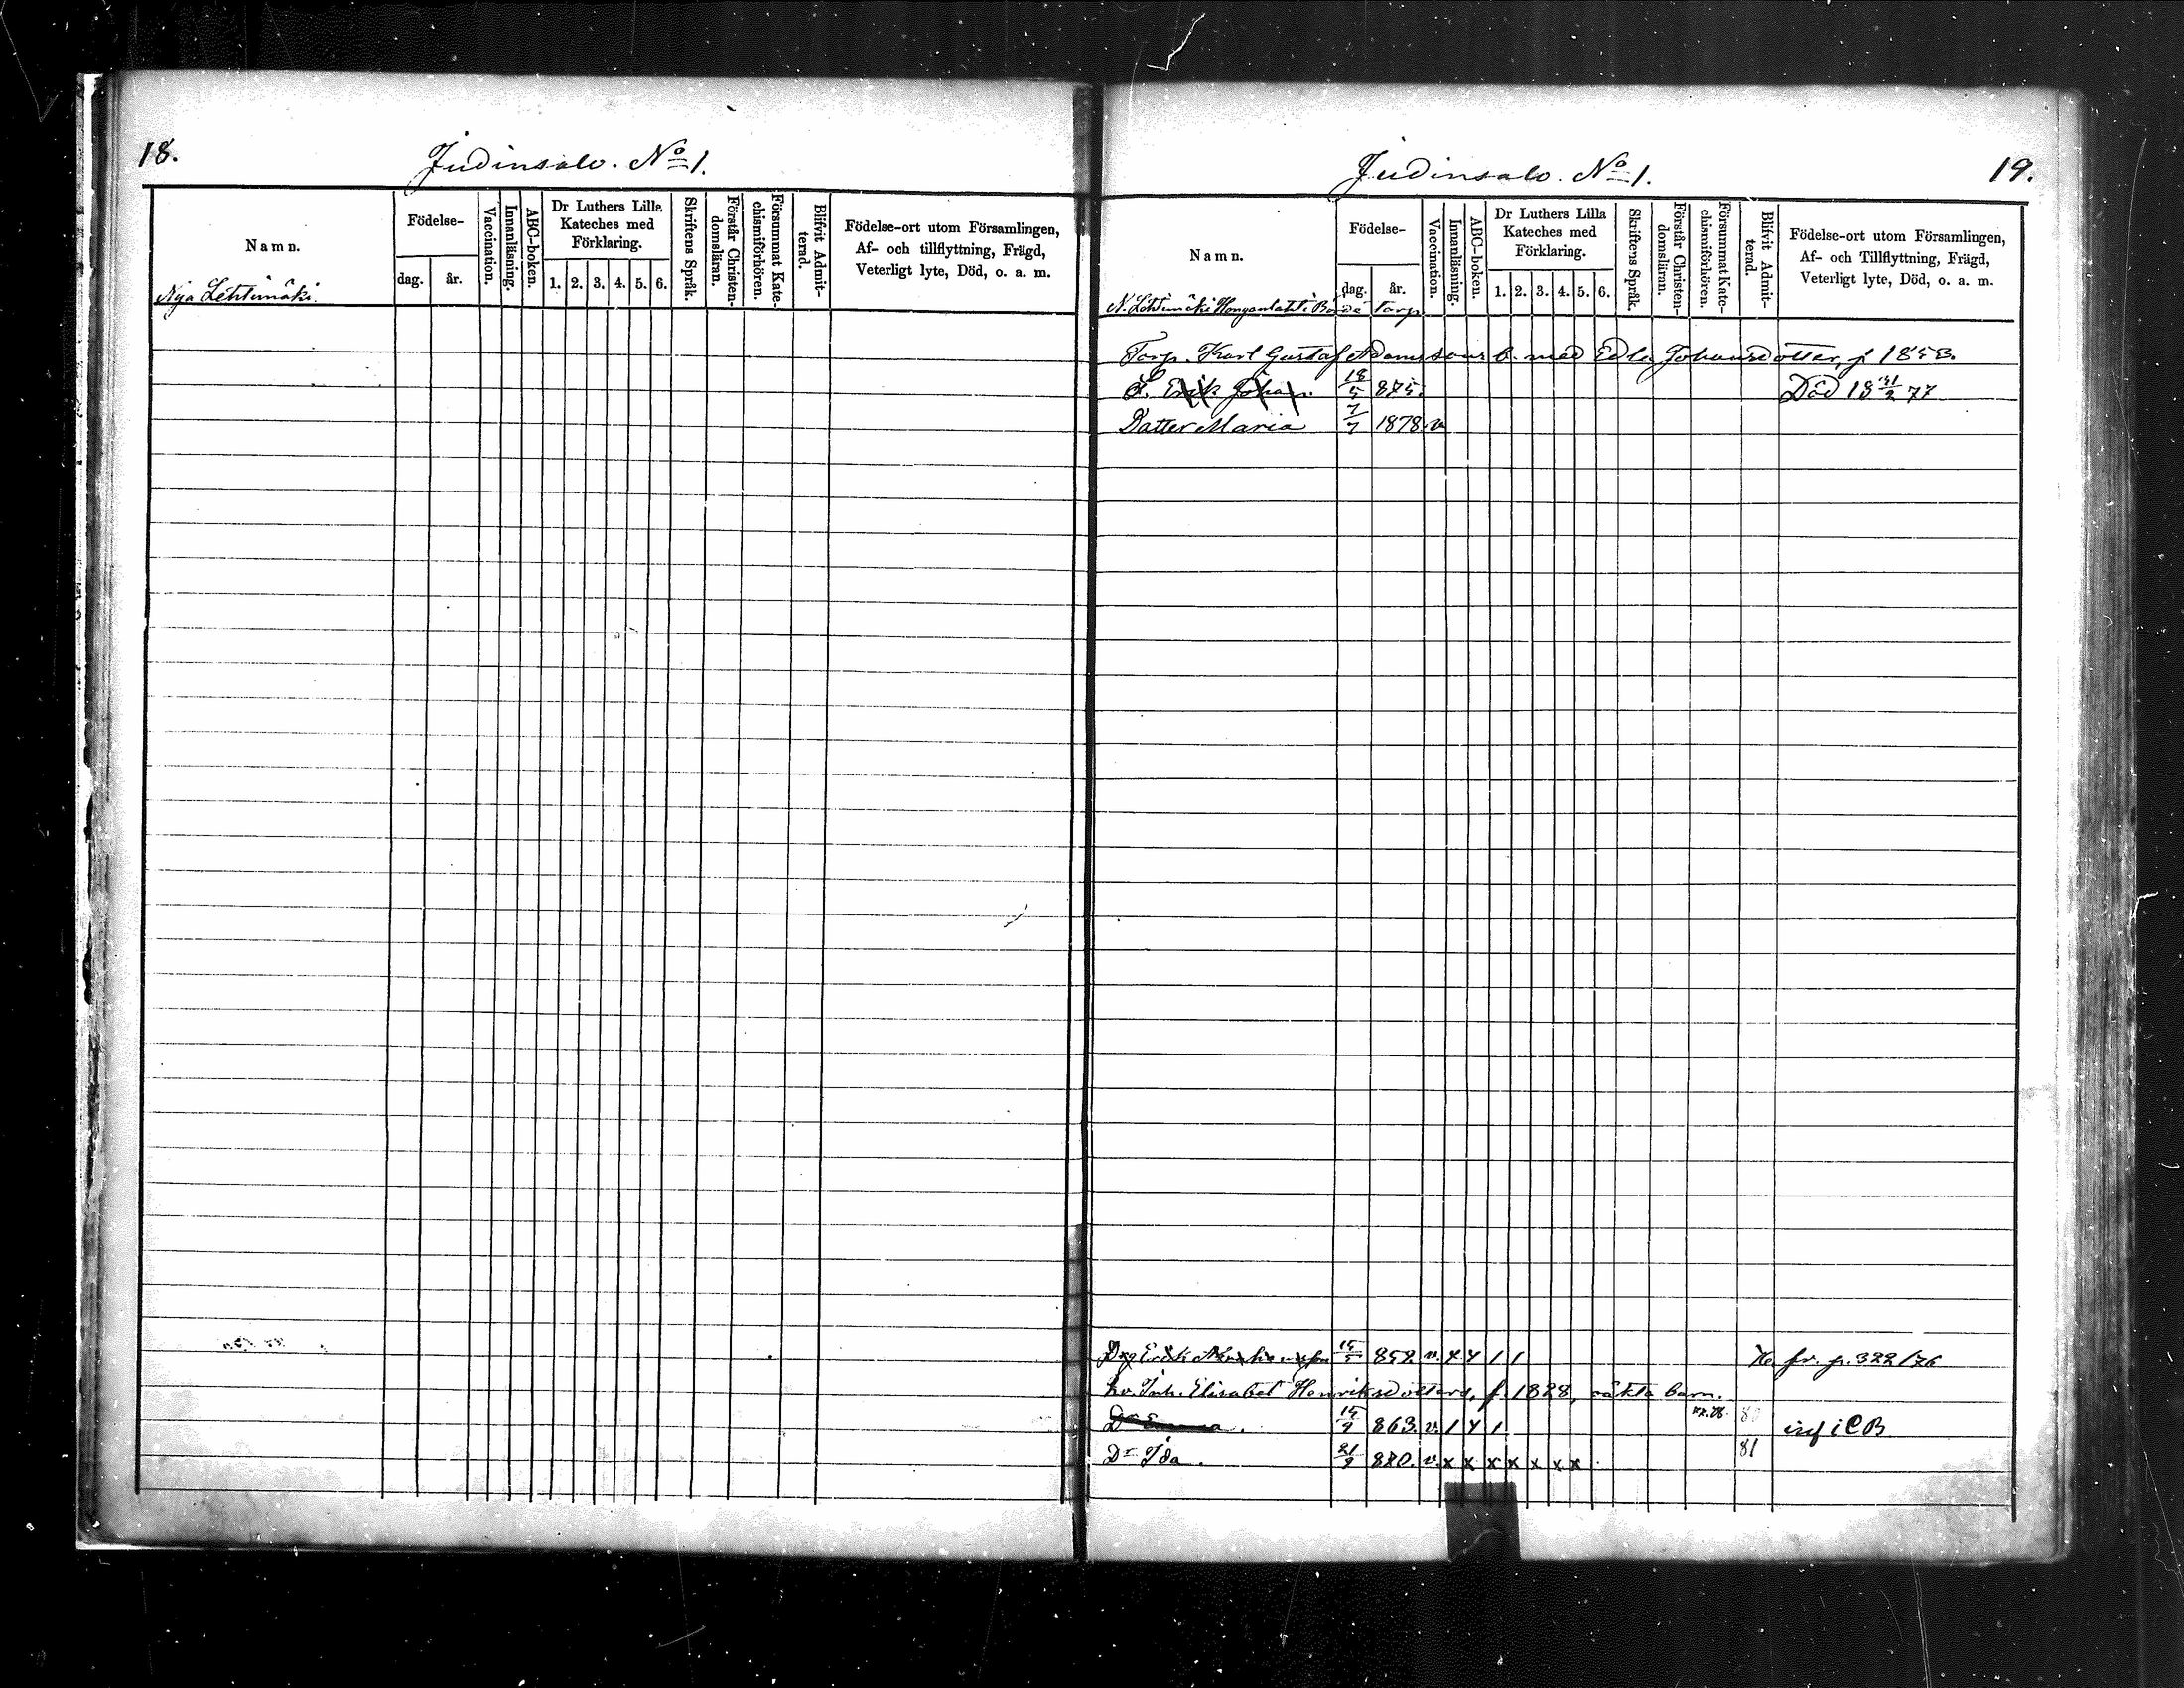 18.
Judinsalo. No 1.
Namn.
Födelse-
dag.
år.
Vaccination.
Innanläsning.
ABC-boken.
Dr Luthers Lilla
Kateches med
Förklaring.
1. 2. 3. 4. 5. 6.
Skriftens Språk.
Förstår Christen-
domsläran.
Försummat Kate-
chismiförhören.
Blifvit Admit-
terad.
Födelse-ort utom Församlingen,
Af- och tillflyttning, Frägd,
Veterligt lyte, Död, o. a. m.
Nya Lehtimäki.
Judinsalo. No 1.
19.
Namn.
Födelse-
dag.
år.
Vaccination.
Innanläsning.
ABC-boken.
Dr Luthers Lilla
Kateches med
Förklaring.
1. 2. 3. 4. 5. 6.
Skriftens Språk.
Förstår Christen-
domsläran.
Försummat Kate-
chismiförhören.
Blifvit Admit-
terad.
Födelse-ort utom Församlingen,
Af- och Tillflyttning, Frägd,
Veterligt lyte, Död, o. a. m.
N. Lehtimäki Honganlahti Torp
Torp. Karl Gustaf Adamssons b. med Edla Johansdotter, f 1853.
S. Erik Johan 18/5 875. Död 18 21/2 77
Dotter Maria 7/7 1878 v
Drg Erik 15/5 852 v. x x 1 1 fr. p. 322/76
Inh. Elisabet Henriksdotters, f. 1828, oäkta barn.
Dr Emma. 15/9 863. v. 1 x 1 80 i CB
Dr Ida. 21/9 880. v. x x x x x x x 81